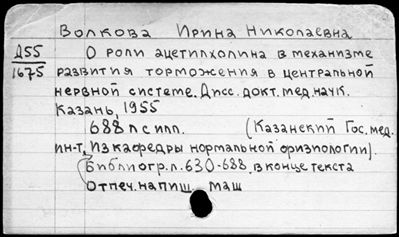 Волкова Ирина Николаевна
Д55
1675
О роли ацетилхолина в механизме
развития торможения в центральной
нервной системе. Дисс. докт. мед. наук.
Казань, 1955
688 л с илл. (Казанский Гос. мед.
ин-т. Из кафедры нормальной физиологии).
Библиогр. л. 630-688. в конце текста
Отпеч. напиш. маш